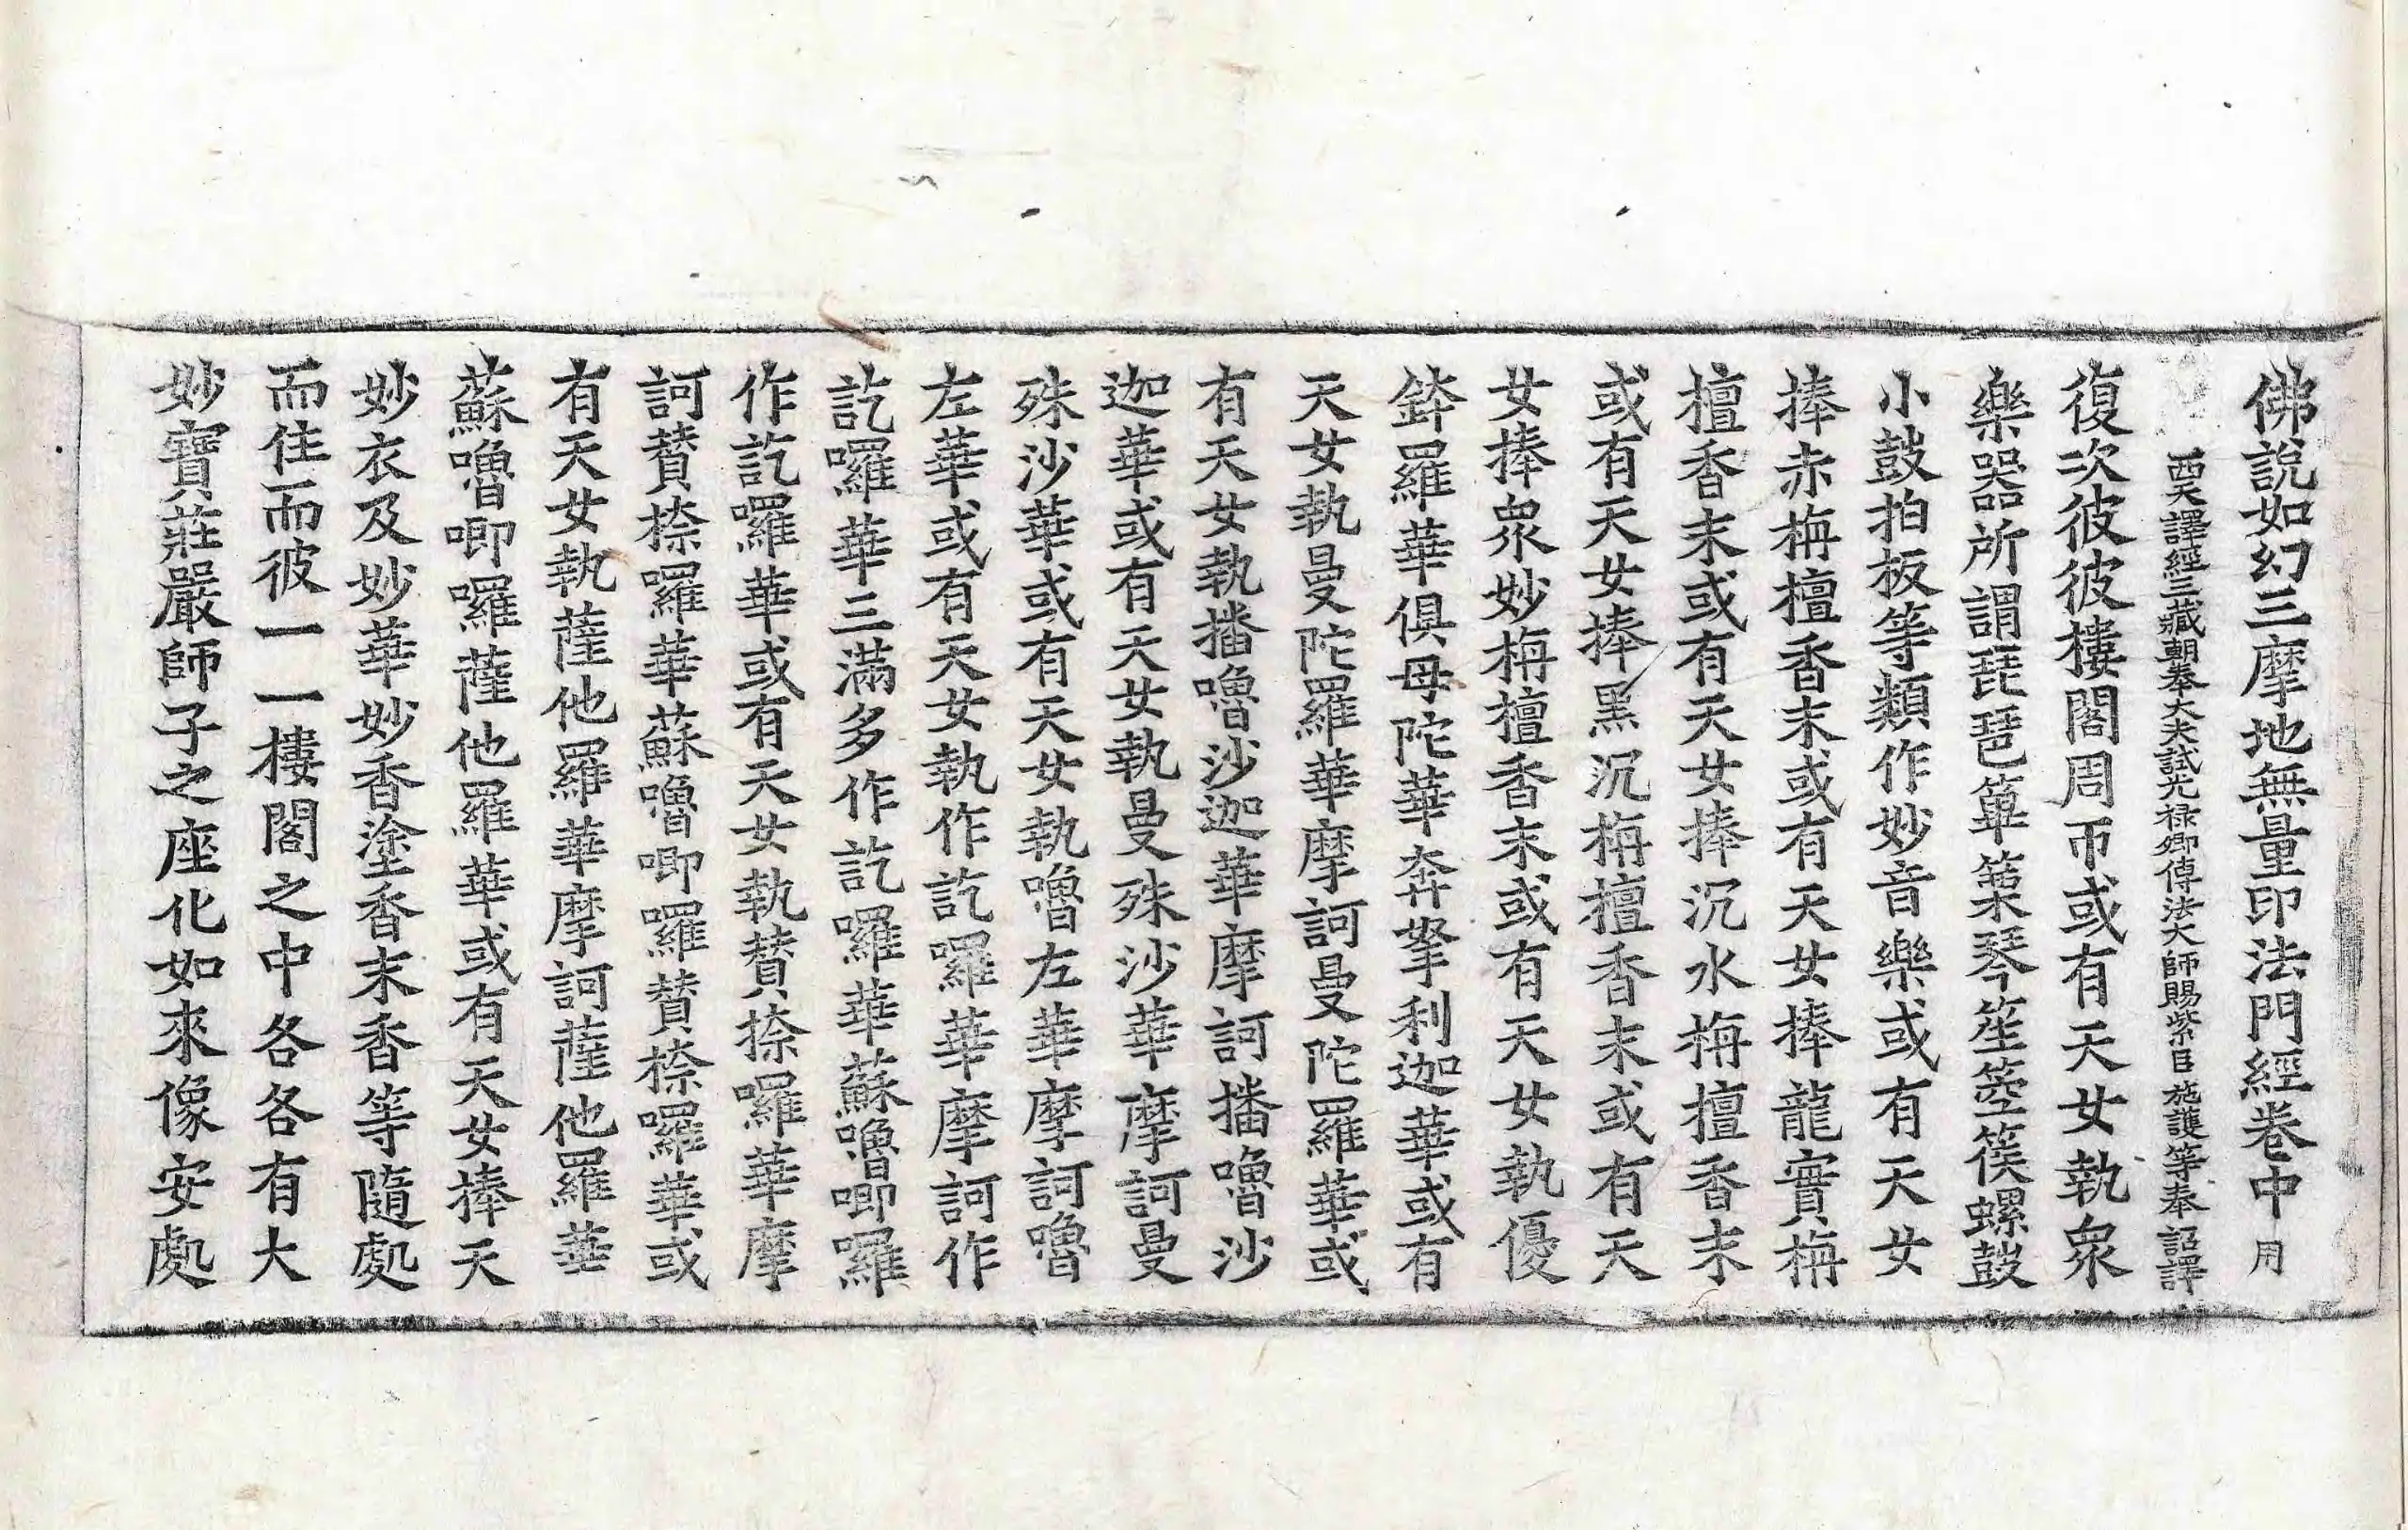 佛說如幻三摩地無量印法門經卷中 用
西天譯經三藏朝奉大夫試光祿卿傳法大師賜紫臣 施護等奉 詔譯
復次彼彼樓閣周帀或有天女執衆
樂器所謂琵琶篳篥琴笙箜篌螺鼓
小鼓拍板等類作妙音樂或有天女
捧赤栴檀香末或有天女捧龍實栴
檀香末或有天女捧沉水栴檀香末
或有天女捧黑沉栴檀香末或有天
女捧衆妙栴檀香末或有天女執優
鉢羅華俱母陀華奔拏利迦華或有
天女執曼陀羅華摩訶曼陀羅華或
有天女執播嚕沙迦華摩訶播嚕沙
迦華或有天女執曼殊沙華摩訶曼
殊沙華或有天女執嚕左華摩訶嚕
左華或有天女執作訖囉華摩訶作
訖囉華三滿多作訖囉華蘇嚕唧囉
作訖囉華或有天女執贊捺囉華摩
訶贊捺囉華蘇嚕唧囉贊捺囉華或
有天女執薩他羅華摩訶薩他羅華
蘇嚕唧囉薩他羅華或有天女捧天
妙衣及妙華妙香塗香末香等隨處
而住而彼一一樓閣之中各各有大
妙寶莊嚴師子之座化如來像安處